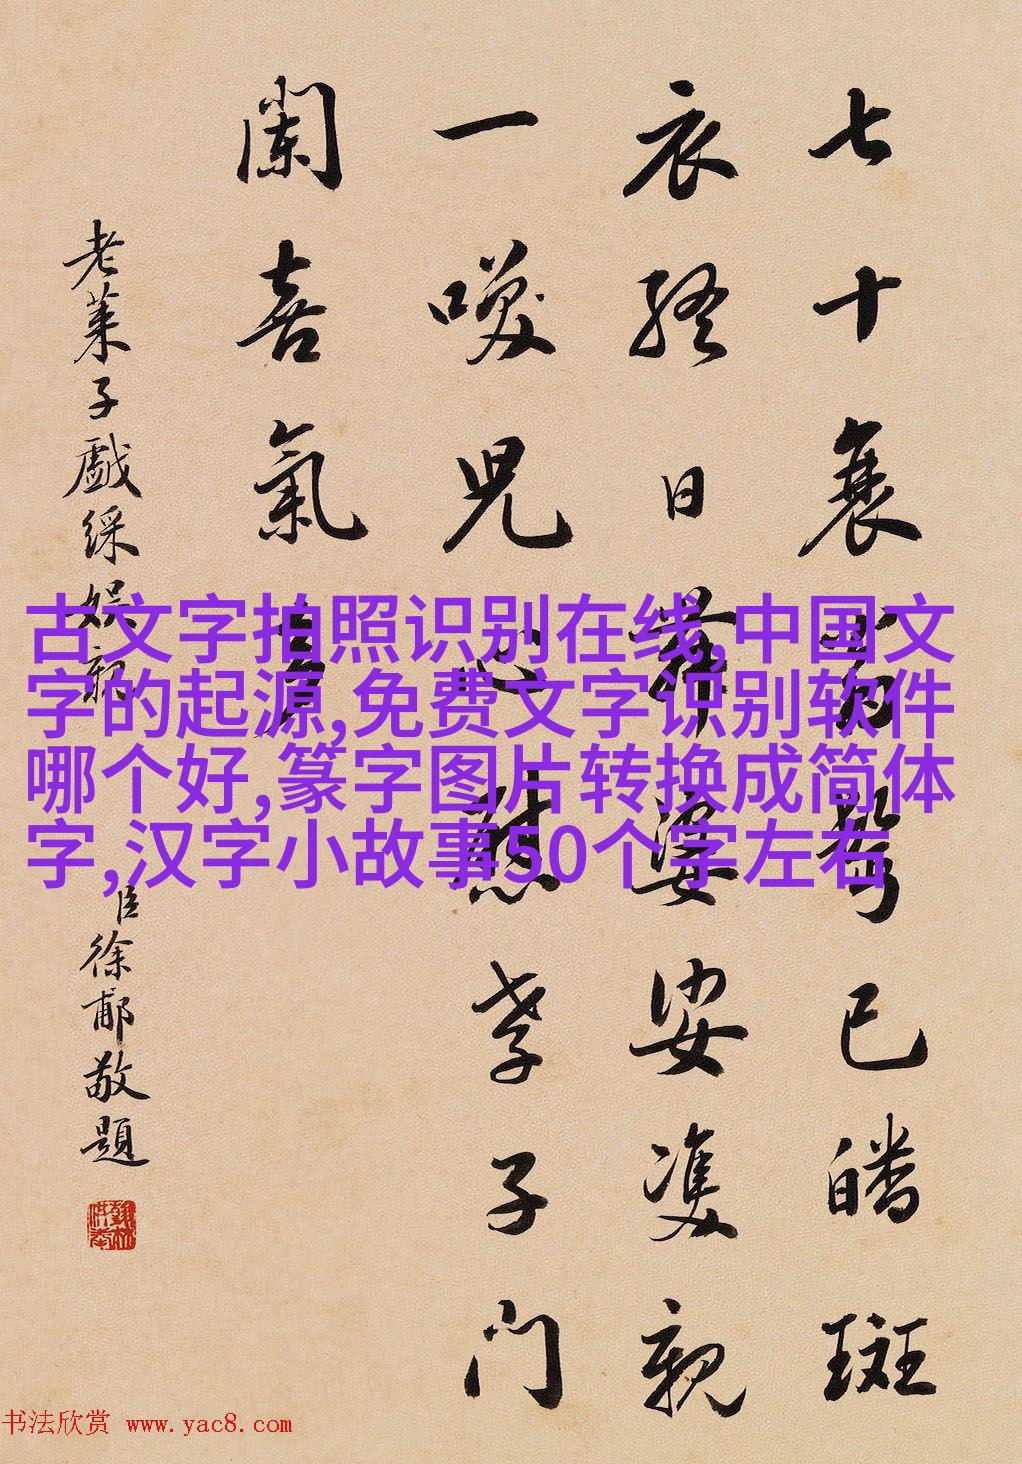 七十衰鬢已皤斑
衣終日舞婆娑雙親
一喚兒心慰孝子門
闌喜氣多
老萊子戲綵娛親
臣徐郙敬題
古文字拍照识别在线,中国文
字的起源,免费文字识别软件
哪个好,篆字图片转换成简体
字,汉字小故事50个字左右
书法欣赏 www.yac8.com